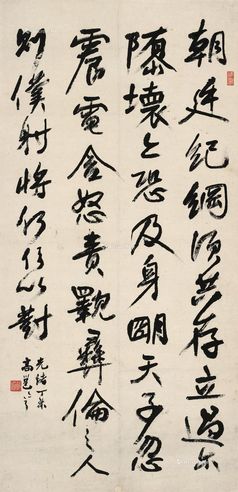 朝廷紀綱須共存立過尔
隳壞亦恐及身明天子忽
震電含怒責斁彝倫之人
則僕射將何辭以對
光緒丁未
高邕